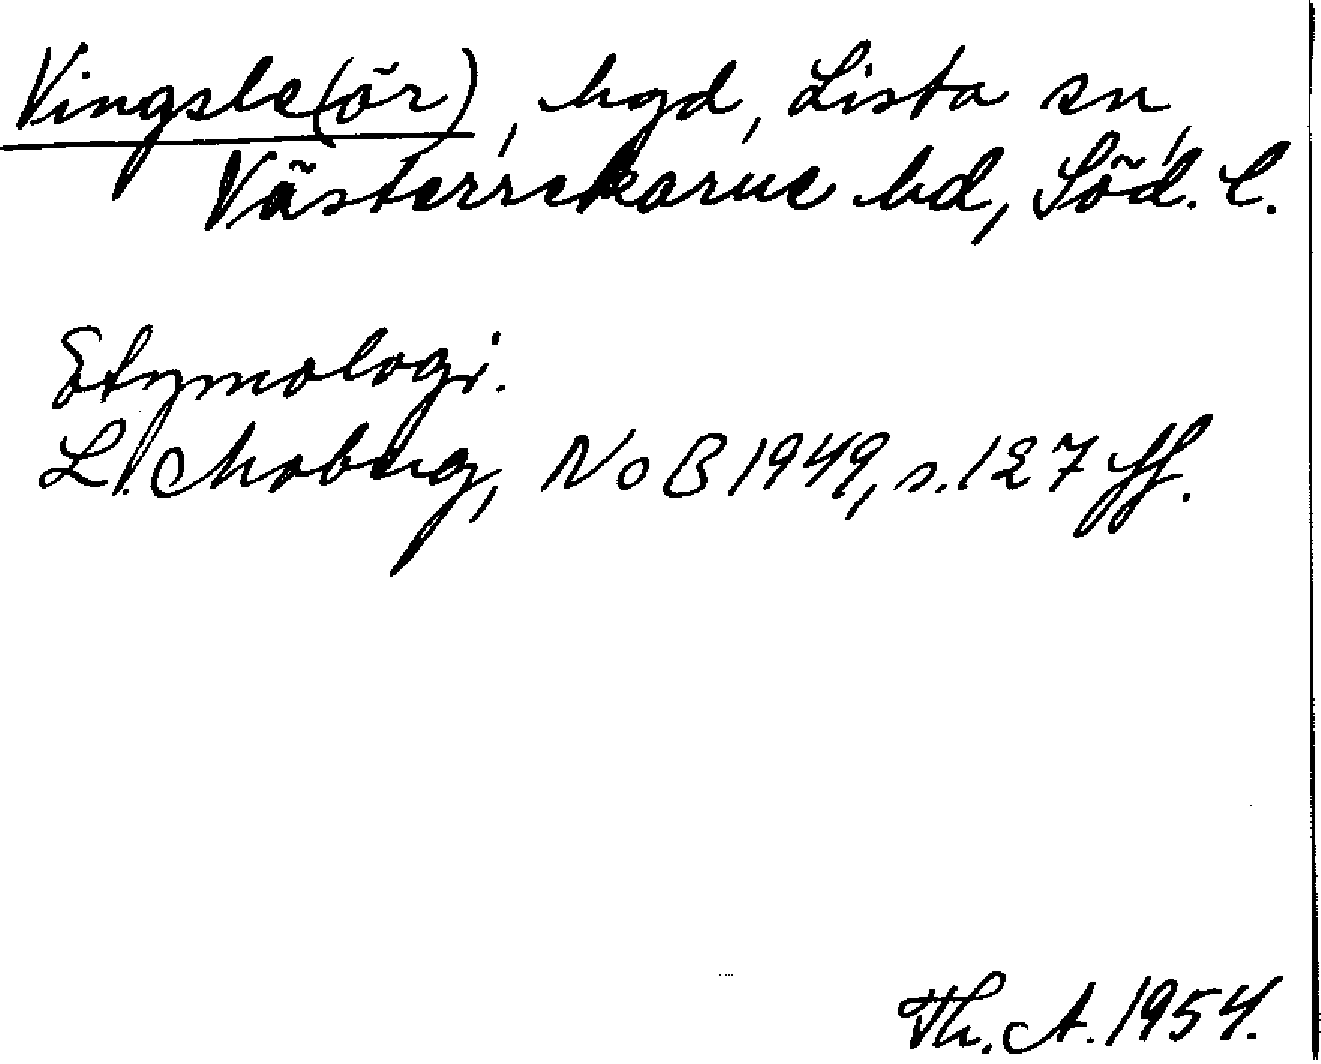 Vingsle(ör), hgd, Lista sn,
Västerrekarne hd, Söd. l.
Etymologi.
L. Moberg, NoB 1949, s. 127 ff.
Th. A. 1954.